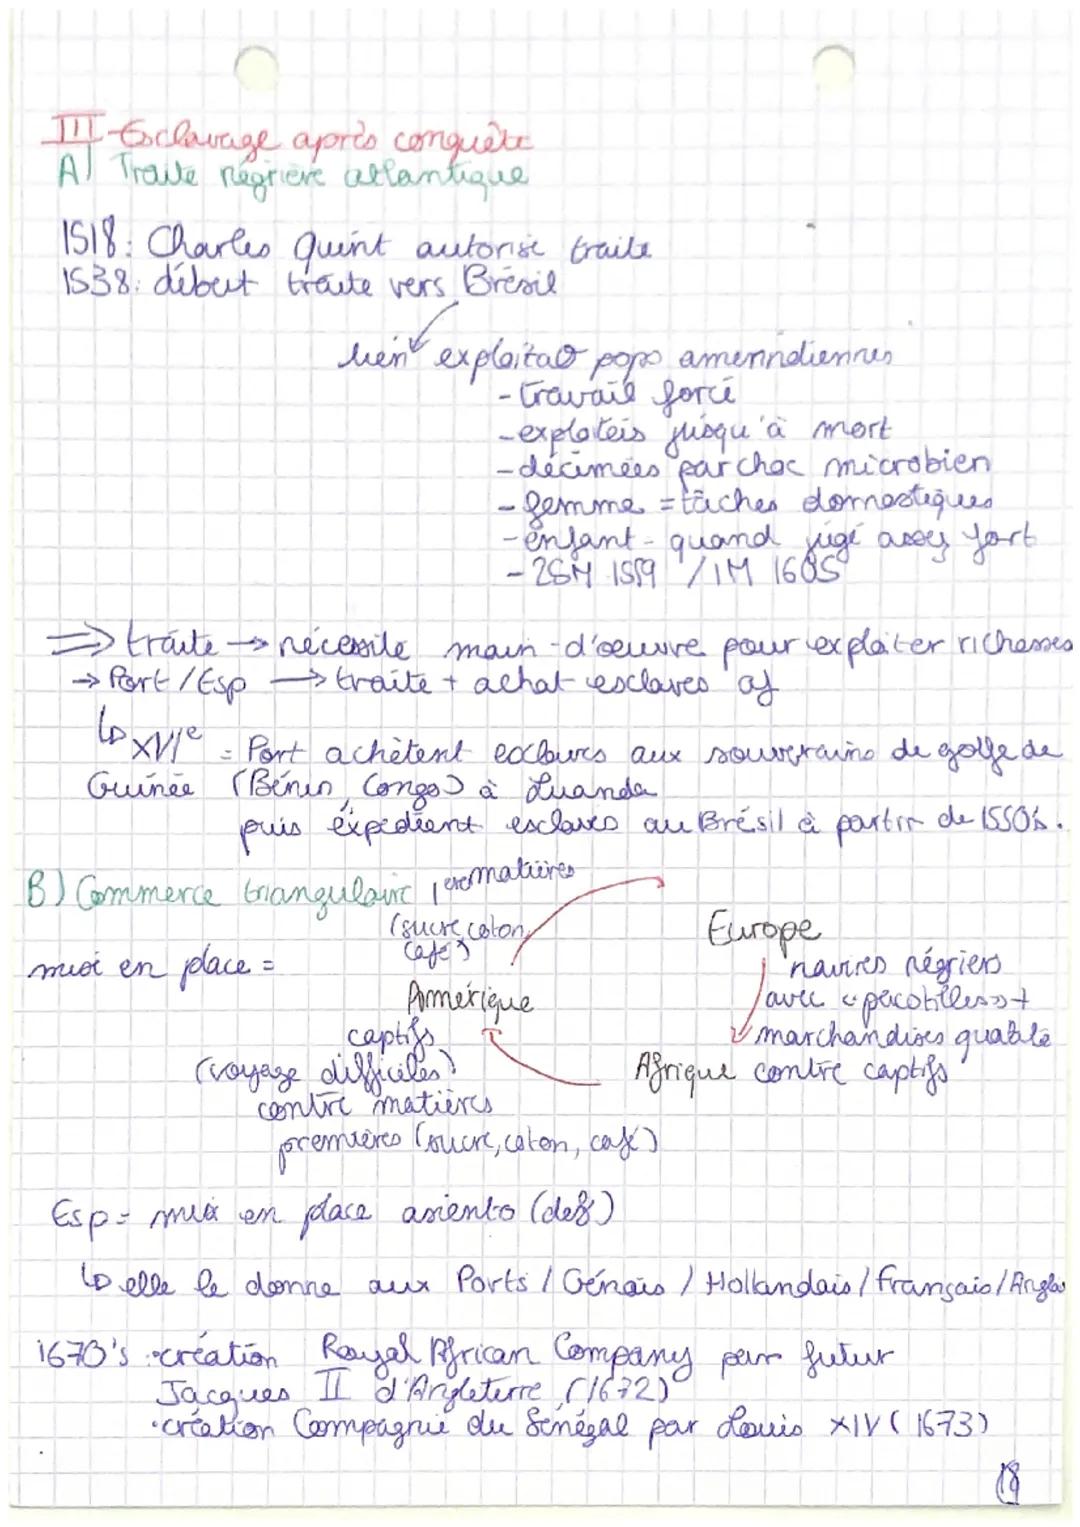 III - Esclavage après conquête
A) Traite négrière atlantique
1518: Charles Quint autorise traite
1538: début traite vers Brésil
lien exploitaø pops amérindiennes
- travail forcé
- exploités jusqu'à mort
- décimées par choc microbien
- femme = tâches domestiques
- enfant - quand jugé assez fort
- 25M 1519 / 1M 1605
⇒ traite → nécessite main-d'œuvre pour exploiter richesses
→ Port / Esp → traite + achat esclaves af
↳ XVIe = Port achètent esclaves aux souverains de golfe de
Guinée (Bénin, Congo) à Luanda
puis expédient esclaves au Brésil à partir de 1550's.
B) Commerce triangulaire
1eres matières
(sucre, coton,
café)
Europe
mise en place =
navires négriers
Amérique
avec « pacotilles » +
captifs
marchandises qualité
(voyage difficiles)
Afrique contre captifs
contre matières
premières (sucre, coton, café)
Esp = mise en place asiento (def)
↳ elle le donne aux Ports / Génois / Hollandais / Français / Anglais
1670's • création Royal African Company par futur
Jacques II d'Angleterre (1672)
• création Compagnie du Sénégal par Louis XIV (1673)